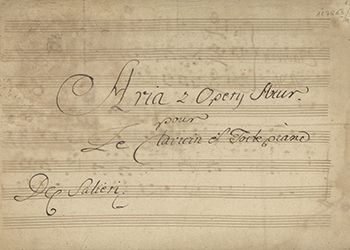 Aria z Opery Axur.
pour
Le Clavicin et Forte piano
De Salieri.